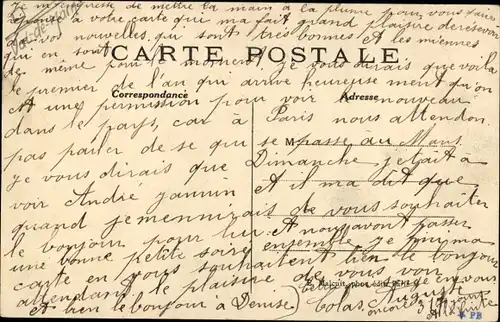 Je m'empresse de mettre la main à la plume pour vous faire
réponse à votre carte qui ma fait grand plaisire de recevoir
vos nouvelles qui sont très bonnes et les miennes
en sont
CARTE POSTALE
de même pour le moment, je vous dirais que voila
le premier de l'an qui arrive heureusement qu'on
Correspondance Adresse
At une permission pour voir nouveau
dans le pays, car à Paris nous attendon
pas parler de se qui se passe au Mans
M
je vous dirais que Dimanche jetait à
voir André jannin At il ma dit que
quand jemennuirais de vous souhaiter
le bonjour pour lui At nous avont passer
une bonne petite soirée ensemble, je
carte en vous souhaitent bien le bonjour
attendant le plaisire de vous voir
et bien le bonjour à Denise
Colas Auguste
PB